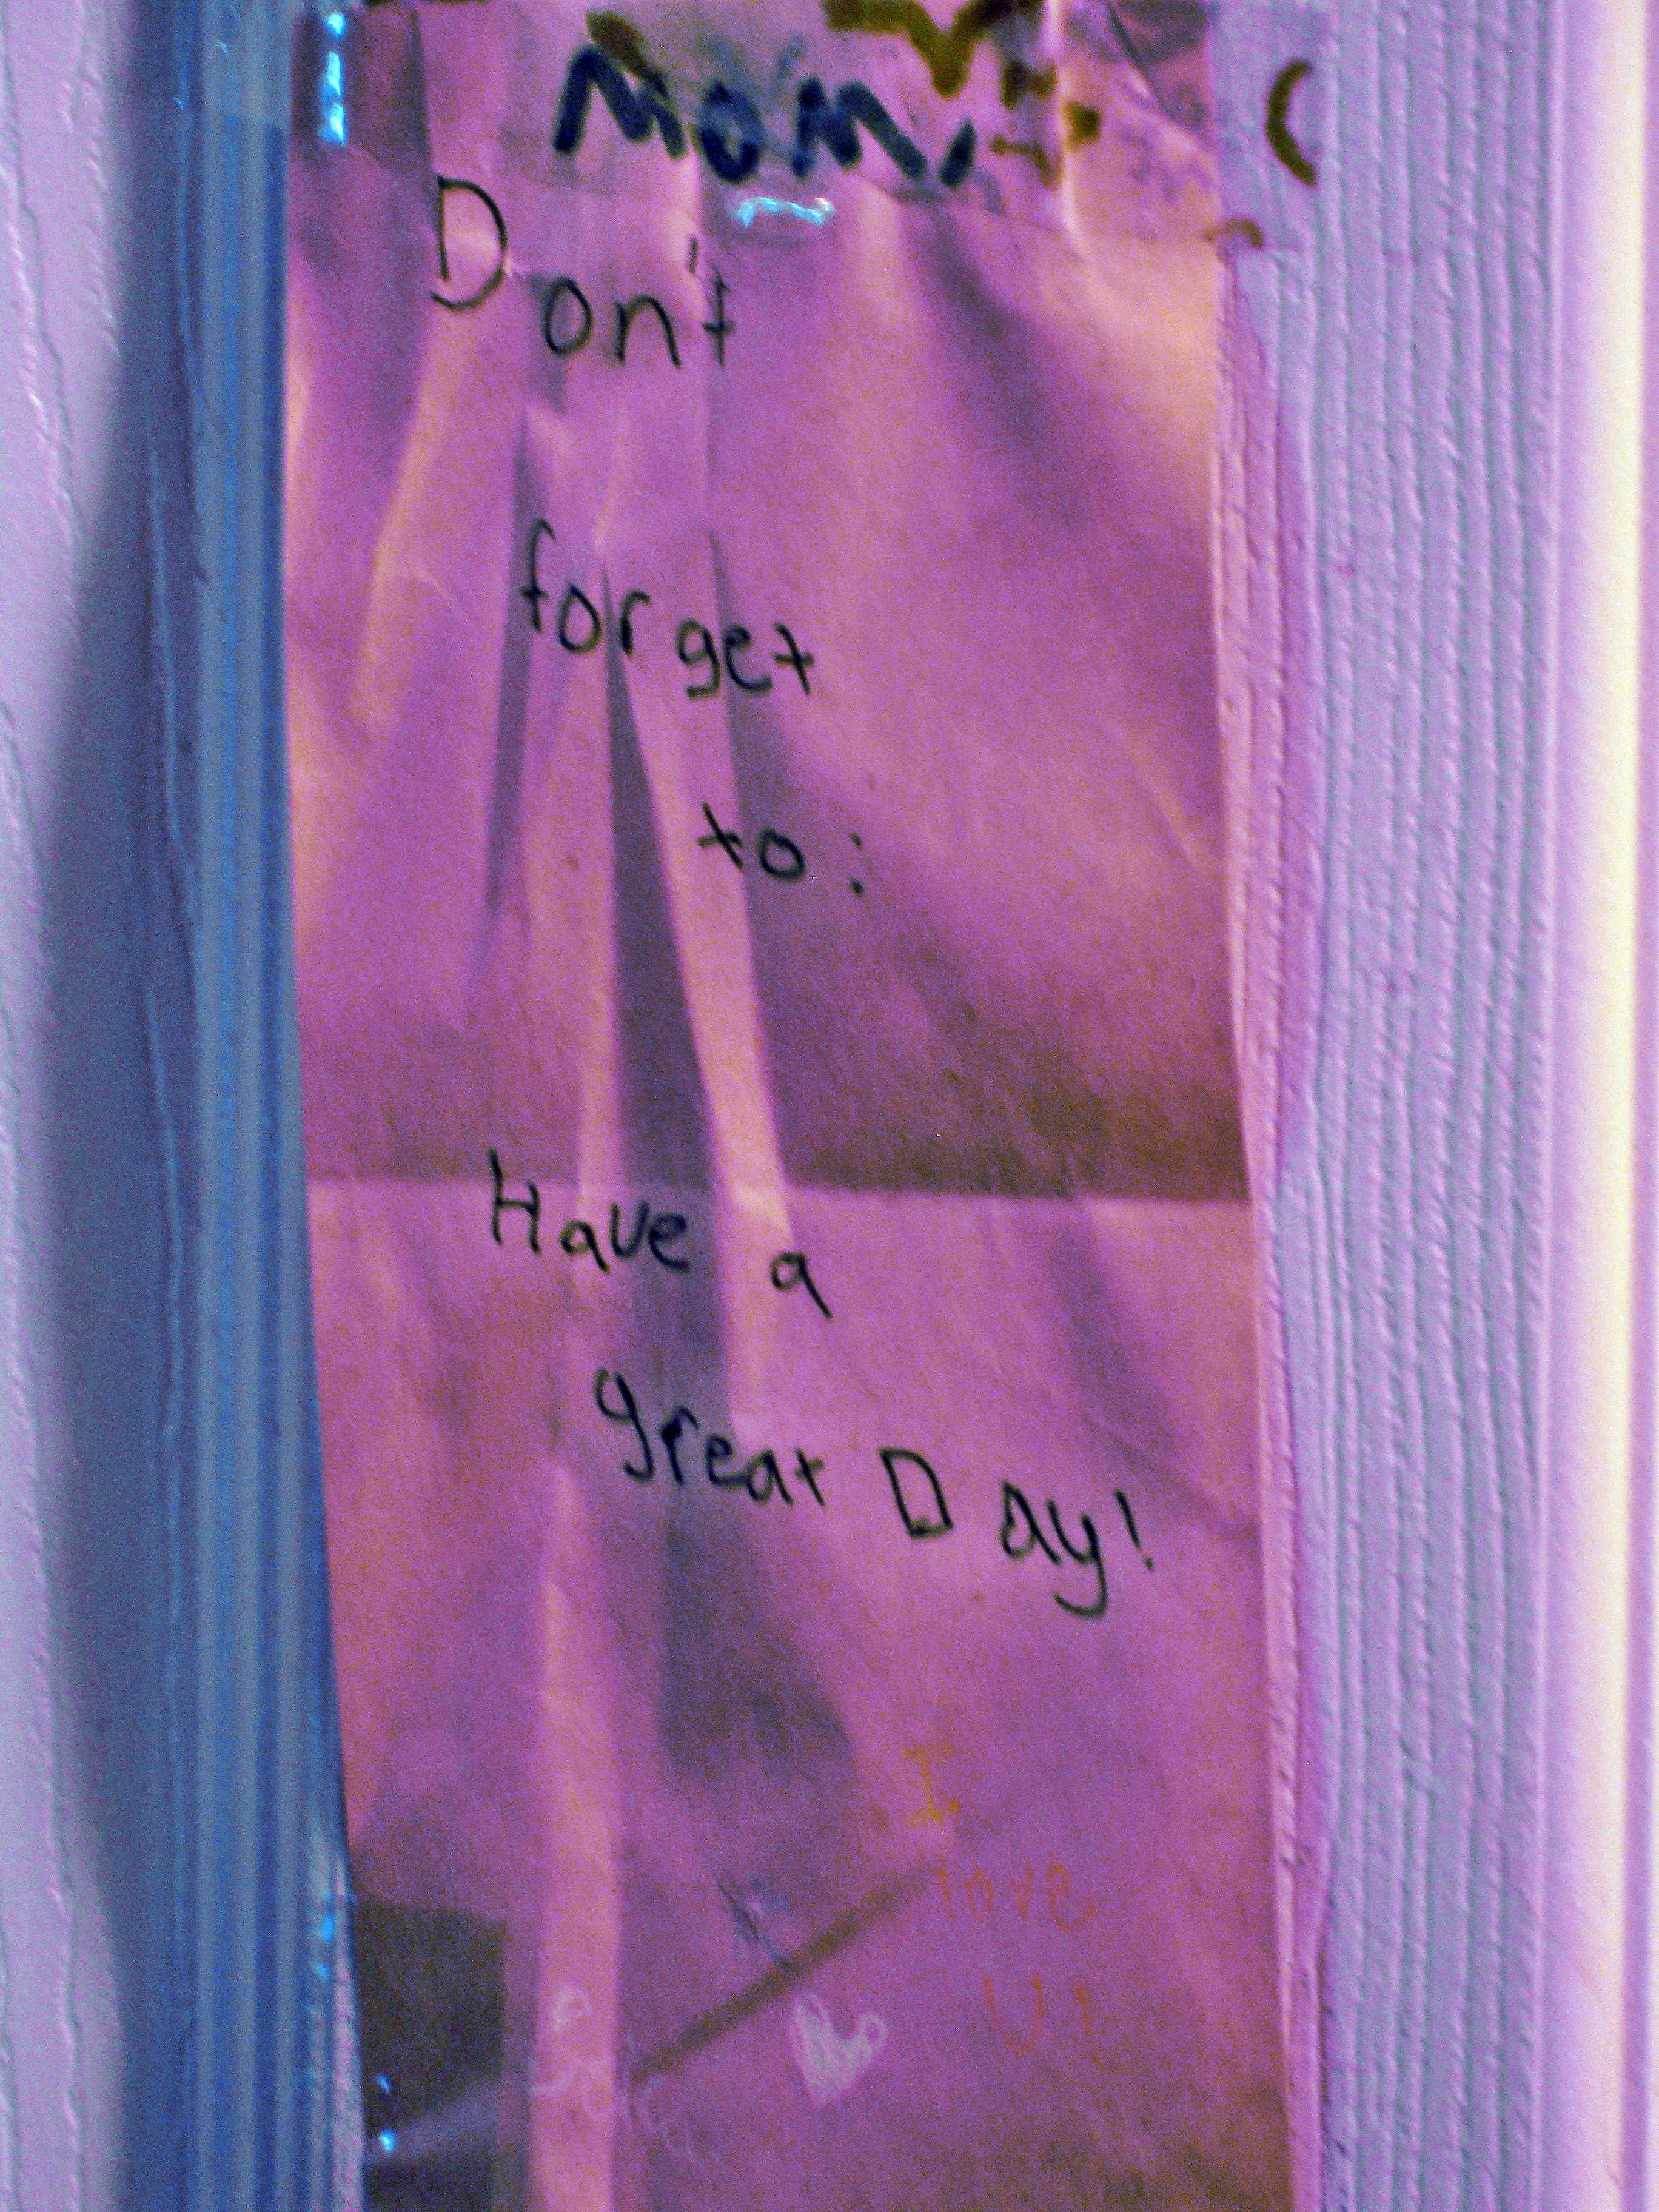 Mom,
Don't
forget
to:
Have a
great Day!
I
love
U!